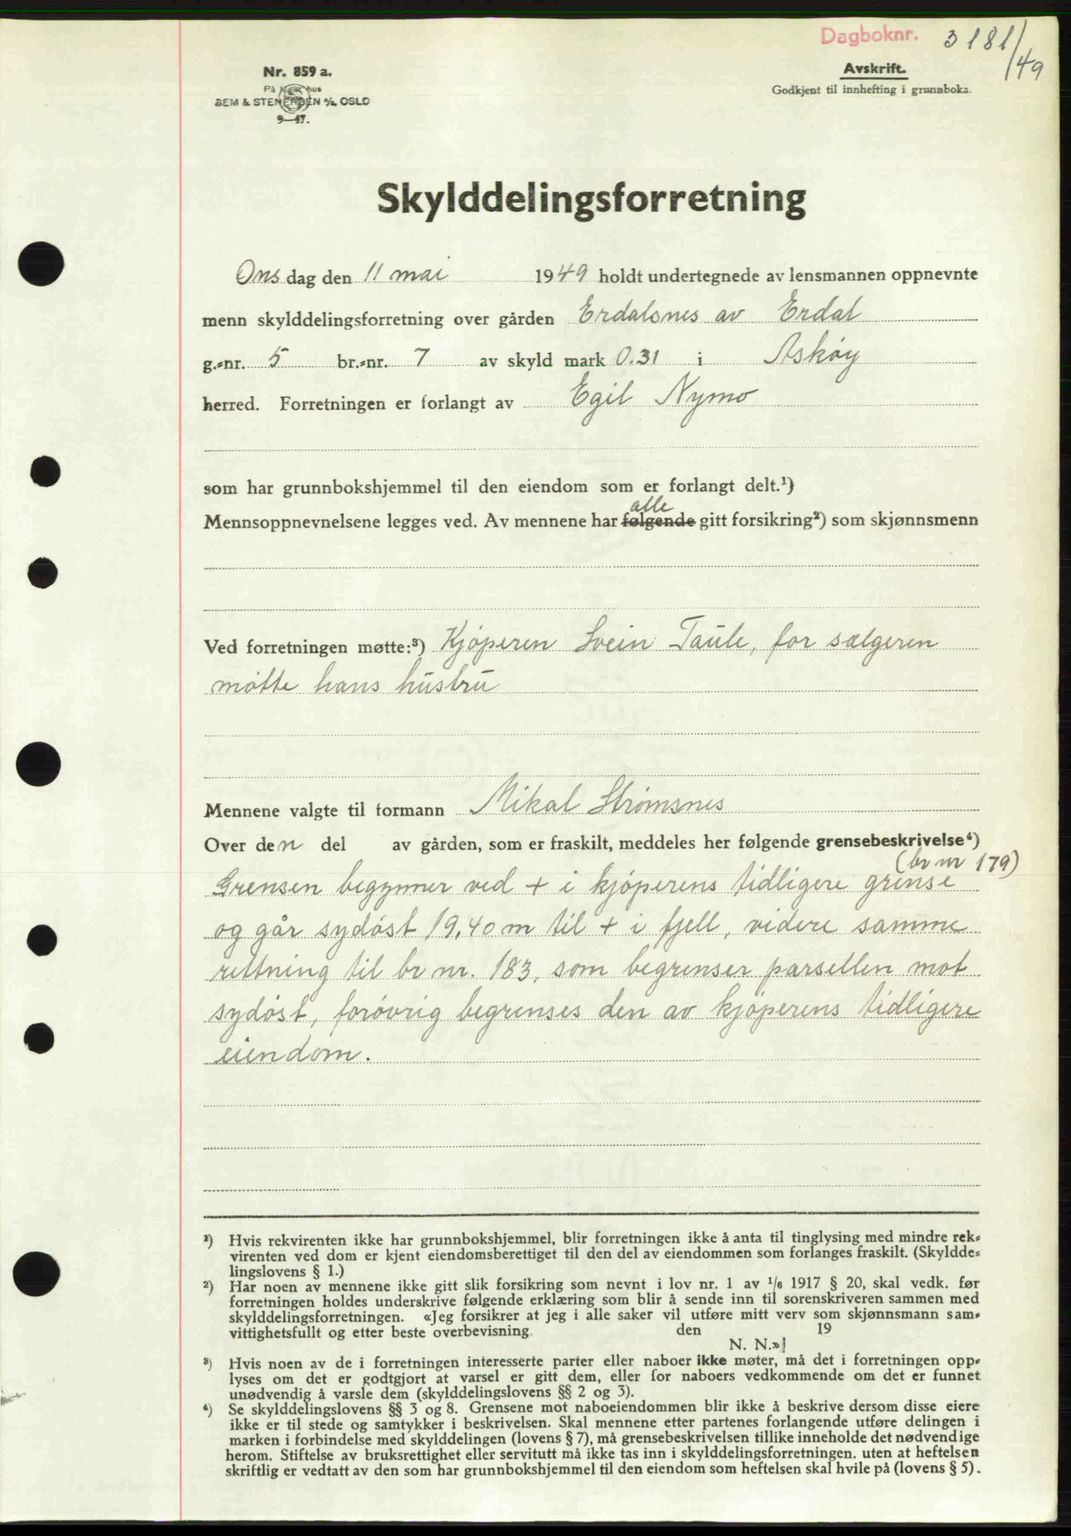 Dagboknr. 3181/49
Nr. 859 a.
På lager hos
SEM & STENERSEN A/S, OSLO
9—47.
Avskrift.
Godkjent til innhefting i grunnboka.
Skylddelingsforretning
Onsdag den 11 mai 1949 holdt undertegnede av lensmannen oppnevnte
menn skylddelingsforretning over gården Erdalsnes av Erdal
g.-nr. 5 br.-nr. 7 av skyld mark 0.31 i Askøy
herred. Forretningen er forlangt av Egil Nymo
som har grunnbokshjemmel til den eiendom som er forlangt delt.¹)
alle
Mennsoppnevnelsene legges ved. Av mennene har følgende gitt forsikring²) som skjønnsmenn
Ved forretningen møtte:³) Kjøperen Svein Taule, for sælgeren
møtte hans hustru
Mennene valgte til formann Mikal Strømsnes
Over den del av gården, som er fraskilt, meddeles her følgende grensebeskrivelse⁴)
(br nr 179)
Grensen begynner ved + i kjøperens tidligere grense
og går sydøst 19,40 m til + i fjell, videre samme
rettning til br nr. 183, som begrenser parsellen mot
sydøst, forøvrig begrenses den av kjøperens tidligere
eiendom.
¹) Hvis rekvirenten ikke har grunnbokshjemmel, blir forretningen ikke å anta til tinglysing med mindre rek-
virenten ved dom er kjent eiendomsberettiget til den del av eiendommen som forlanges fraskilt. (Skyldde-
lingslovens § 1.)
²) Har noen av mennene ikke gitt slik forsikring som nevnt i lov nr. 1 av 1/6 1917 § 20, skal vedk. før
forretningen holdes underskrive følgende erklæring som blir å sende inn til sorenskriveren sammen med
skylddelingsforretningen. «Jeg forsikrer at jeg i alle saker vil utføre mitt verv som skjønnsmann sam-
vittighetsfullt og etter beste overbevisning. den 19
N. N.»]
³) Hvis noen av de i forretningen interesserte parter eller naboer ikke møter, må det i forretningen opp-
lyses om det er godtgjort at varsel er gitt dem, eller for naboers vedkommende om det er funnet
unødvendig å varsle dem (skylddelingslovens §§ 2 og 3).
⁴) Se skylddelingslovens §§ 3 og 8. Grensene mot naboeiendommen blir ikke å beskrive dersom disse eiere
ikke er til stede og samtykker i beskrivelsen. Skal mennene etter partenes forlangende utføre delingen i
marken i forbindelse med skylddelingen (lovens § 7), må grensebeskrivelsen tillike inneholde det nødvendige
herom. Stiftelse av bruksrettighet eller servitutt må ikke tas inn i skylddelingsforretningen, uten at heftelsen
skriftlig er vedtatt av den som har grunnbokshjemmel til den eiendom som heftelsen skal hvile på (lovens § 5).